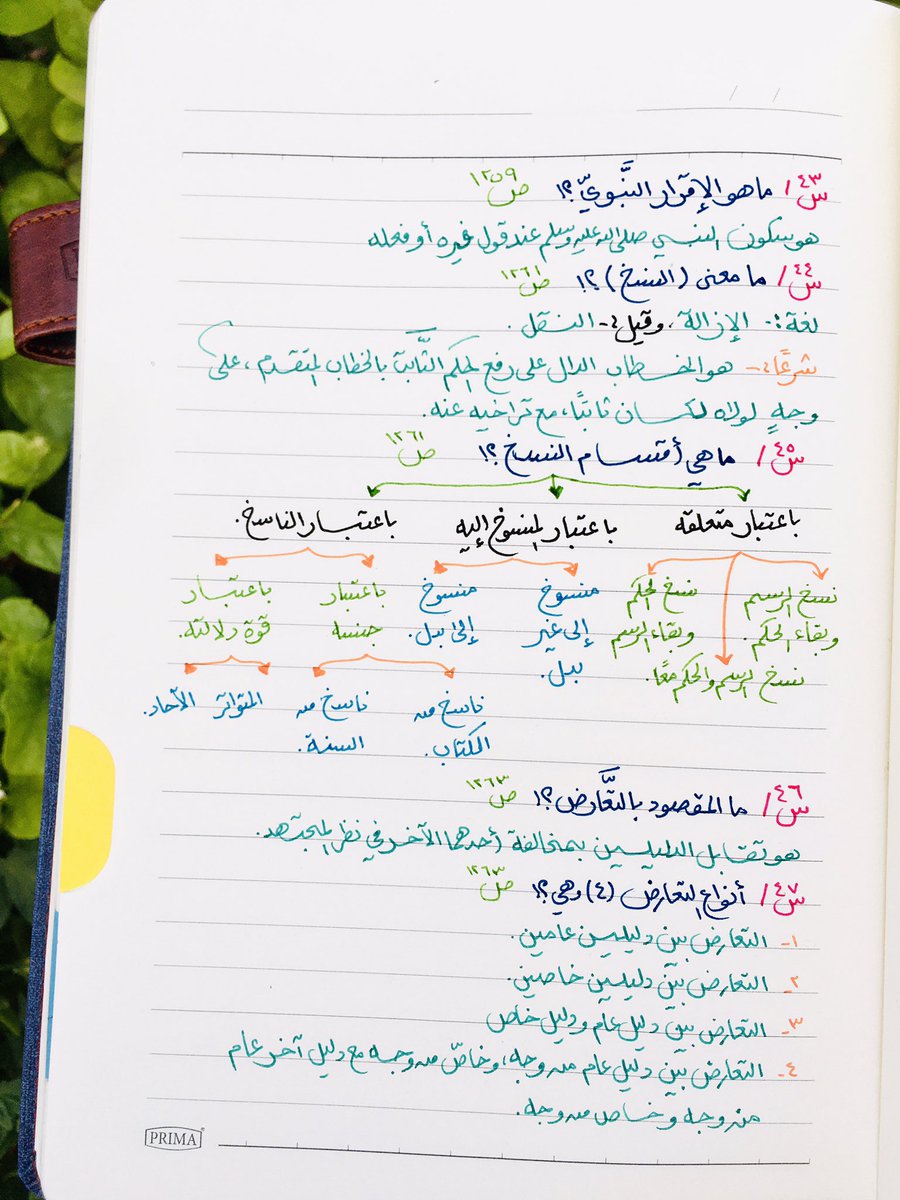 س٤٣/ ما هو الإقرار النَّبويّ؟! ص١٢٥٩
هو سكوت النبي صلى الله عليه وسلم عند قول غيره أو فعله
س٤٤/ ما معنى (النسخ)؟! ص١٢٦١
لغة:- الإزالة، وقيل:- النقل.
شرعًا:- هو الخطاب الدال على رفع الحكم الثَّابت بالخطاب المتقدم، على
وجهٍ لولاه لكان ثابتًا، مع تراخيه عنه.
س٤٥/ ما هي أقسام النسخ؟! ص١٢٦١
باعتبار متعلقه باعتبار المنسوخ إليه باعتبار الناسخ.
نسخ الرسم نسخ الحكم منسوخ منسوخ باعتبار باعتبار
وبقاء الحكم. وبقاء الرسم إلى غير إلى بدل. جنسه قوة دلالته.
نسخ الرسم والحكم معًا. بدل.
ناسخ من ناسخ من المتواتر الآحاد.
الكتاب. السنة.
س٤٦/ ما المقصود بالتَّعارض؟! ص١٢٦٣
هو تقابل الدليلين بمخالفة أحدهما الآخر في نظر المجتهد.
س٤٧/ أنواع التعارض (٤) وهي؟! ص١٢٦٣
١- التعارض بين دليلين عامين.
٢- التعارض بين دليلين خاصين.
٣- التعارض بين دليل عام ودليل خاص
٤- التعارض بين دليل عام من وجه، وخاصّ من وجه مع دليل آخر عام
من وجه وخاص من وجه.
PRIMA